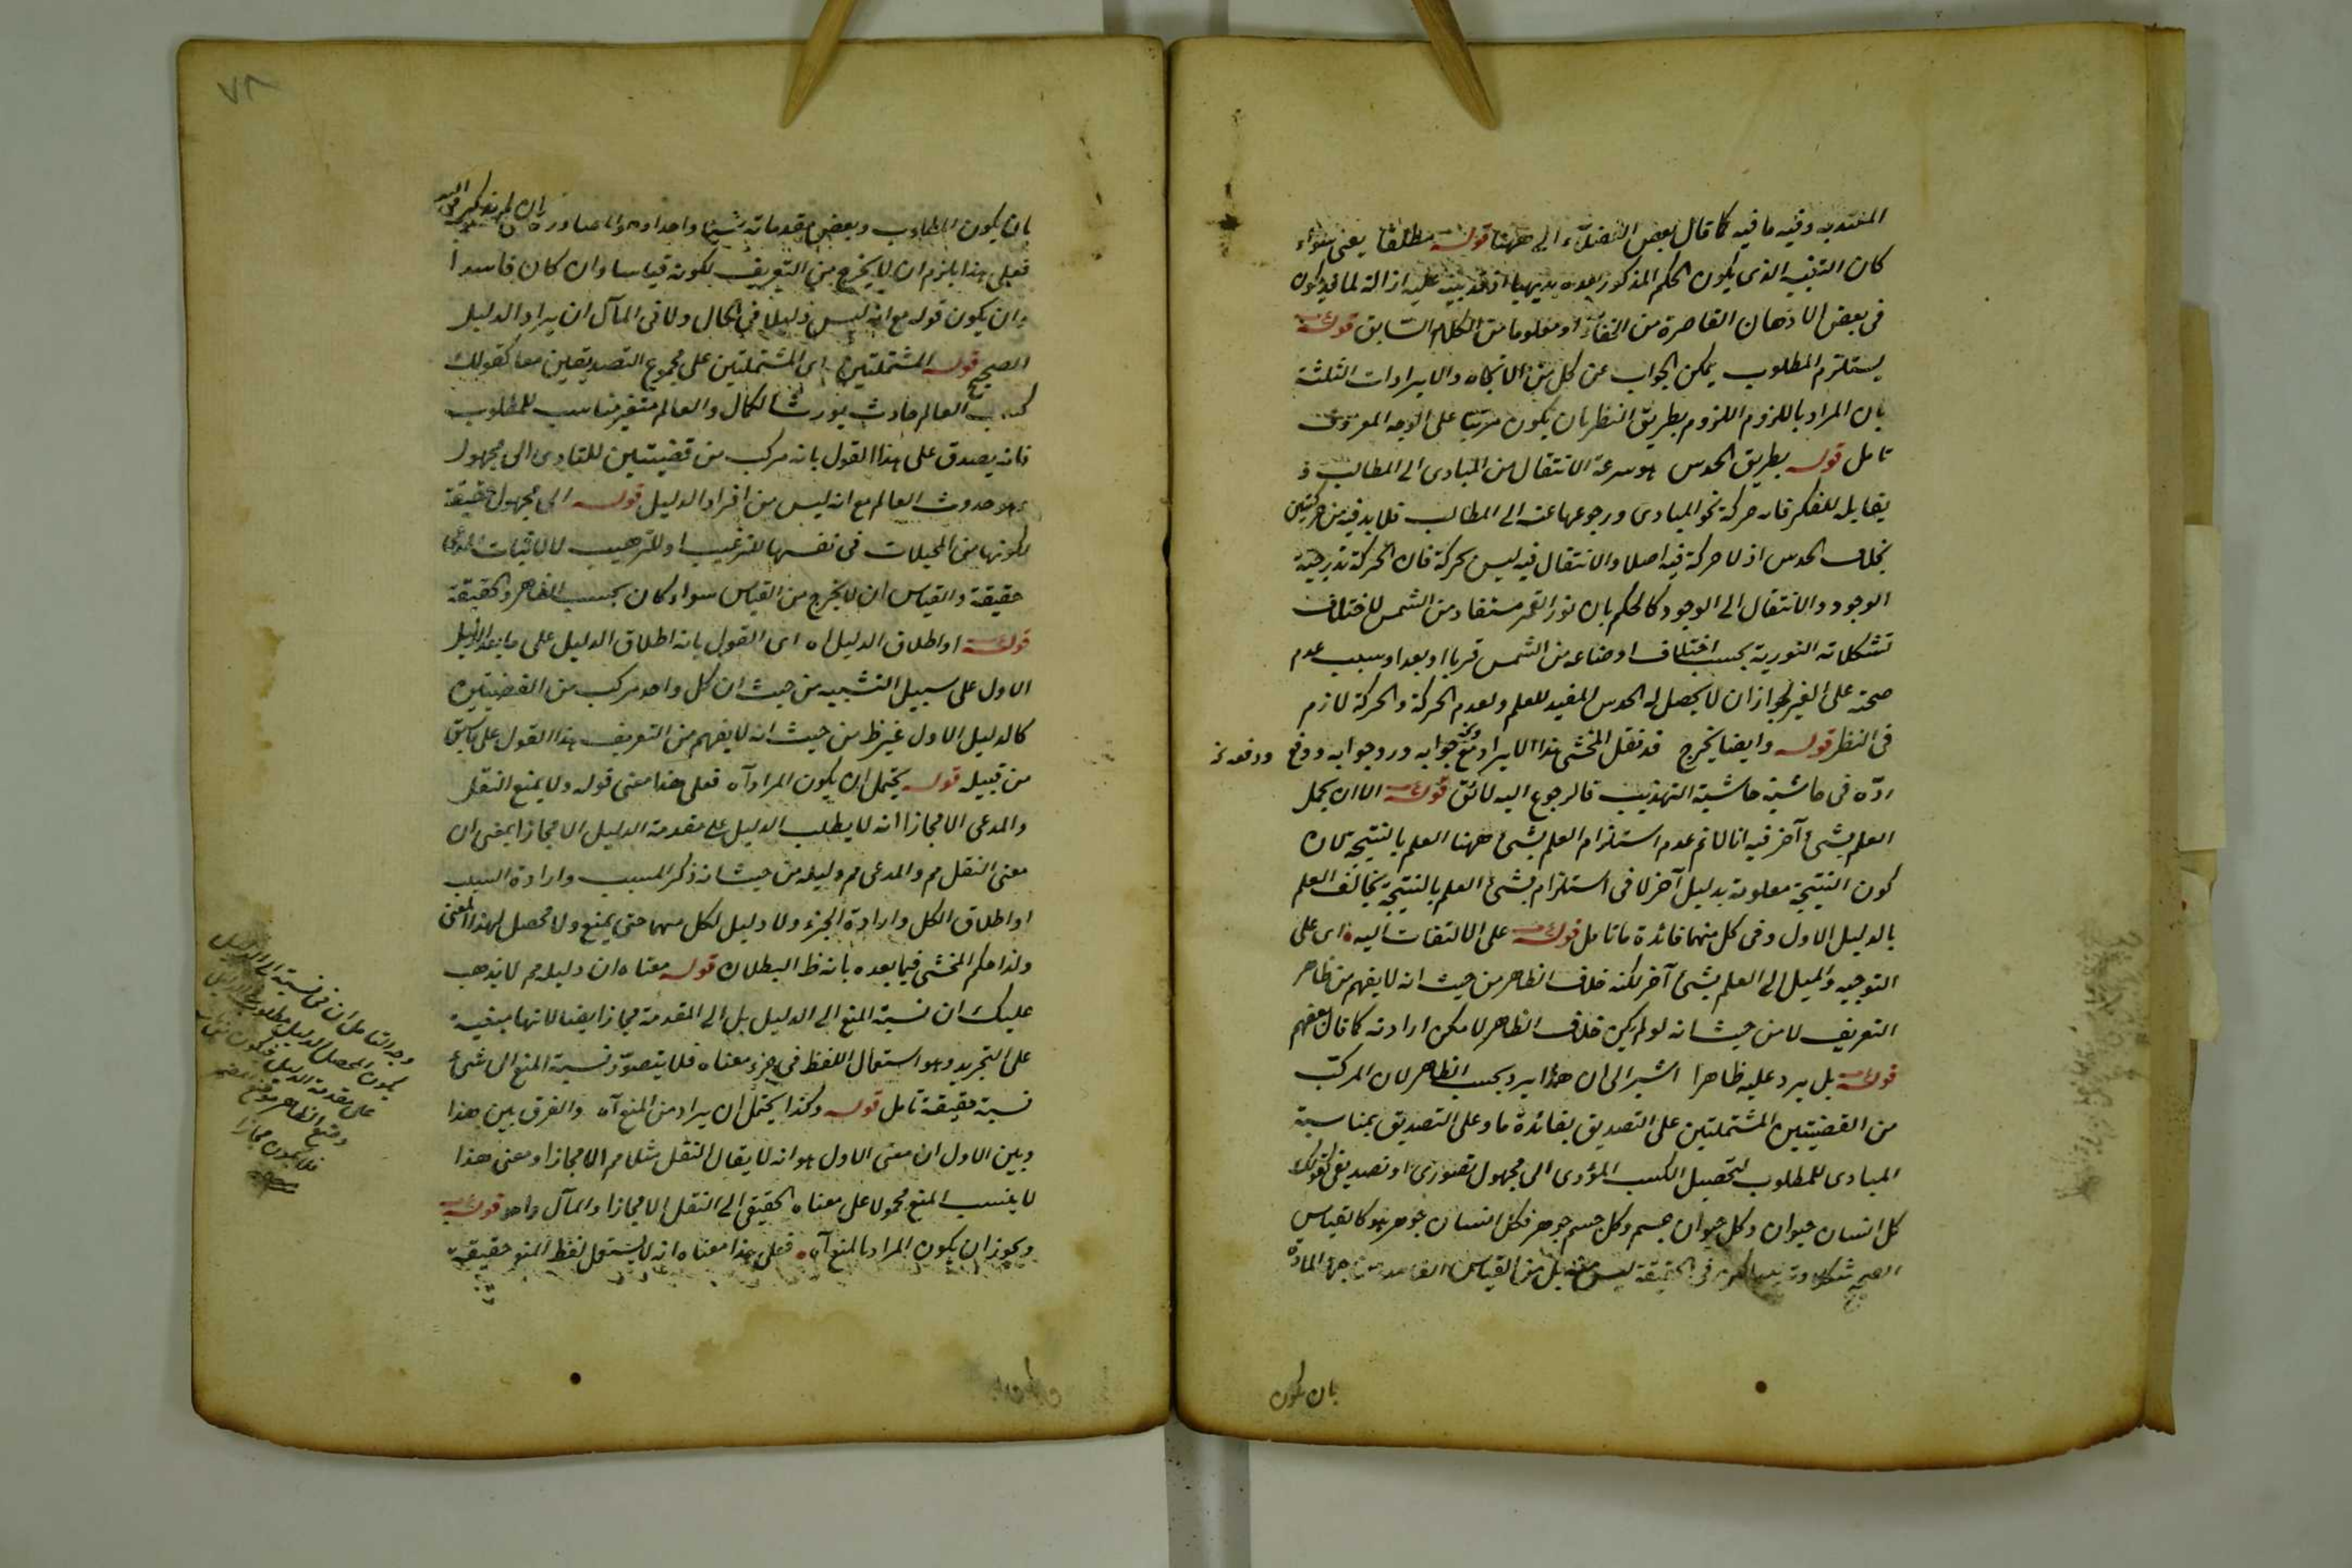 المعتد به وفيه ما فيه كما قال بعض الفضلاء الى ههنا قوله مطلقا يعنى سواء
كان التنبيه الذى يكون الحكم المذكور بعده بديهيا او قد ينبه عليه ازالة لما قد يكون
فى بعض الاذهان القاصرة من الخفاء او معلوما من الكلام السابق قوله
يستلزم المطلوب يمكن الجواب عن كل من الاتكاه والايرادات الثلثة
بان المراد باللزوم اللزوم بطريق النظر بان يكون مرتبا على الوجه المعروف
تامل قوله بطريق الحدس هو سرعة الانتقال من المبادى الى المطالب و
يقابله الفكر فانه حركة نحو المبادى ورجوعها عنه الى المطالب فلا بد فيه من حركتين
بخلاف الحدس اذ لا حركة فيه اصلا والانتقال فيه ليس بحركة فان الحركة تدريجية
الوجود والانتقال الى الوجود كالحكم بان نور القمر مستفاد من الشمس لاختلاف
تشكلاته النورية بحسب اختلاف اوضاعه من الشمس قربا او بعدا وسبب عدم
صحته على الغير لجواز ان لا يحصل له الحدس المفيد للعلم ولعدم الحركة والحركة لازم
فى النظر قوله وايضا يخرج قد نقل المحشى هذا الايراد مع جوابه ورد جوابه ودفع
ردّه فى حاشية حاشية التهذيب فالرجوع اليه لائق قوله الا ان يحمل
العلم بشئ آخر فيه انا لانم عدم استلزام العلم بشئ ههنا العلم بالنتيجة لان
كون النتيجة معلومة بدليل آخر لا فى استلزام بشئ العلم بالنتيجة يخالف العلم
بالدليل الاول وفى كل منهما فائدة ما تامل قوله على الالتفات اليه اى على
التوجيه والميل الى العلم بشئ آخر لكنه خلاف الظاهر من حيث انه لا يفهم من ظاهر
التعريف لا من حيث انه لو لم يكن خلاف الظاهر لامكن ارادته كما قال بعضهم
قوله بل يرد عليه ظاهرا اشير الى ان هذا يرد بحسب الظاهر لان المركب
من القضيتين المشتملتين على التصديق بفائدة ما وعلى التصديق بمناسبة
المبادى للمطلوب لتحصيل الكسب المؤدى الى مجهول تصورى او تصديقى كقولك
كل انسان حيوان وكل حيوان جسم وكل جسم جوهر فكل انسان جوهر فهو كالقياس
الصحيح شكلا وترتيبا لكن فى الحقيقة ليس منه بل من القياس الفاسد من جهة المادة
بان يكون
بان يكون المطلوب وبعض مقدماته شيئا واحدا وهو المصادرة
فعلى هذا يلزم ان لا يخرج من التعريف لكونه قياسا وان كان فاسدا
وان يكون قوله مع انه ليس دليلا فى الحال ولا فى المآل ان يراد الدليل
الصحيح قوله المشتملتين اى المشتملتين على مجموع التصديقين معا كقولك
العالم حادث يورث الكمال والعالم متغير مناسب للمطلوب
فانه يصدق على هذا القول بانه مركب من قضيتين للتادى الى مجهول
وهو حدوث العالم مع انه ليس من افراد الدليل قوله الى مجهول حقيقة
لكونها من المخيلات فى نفسها للترغيب او للترهيب لا لاثبات المدعى
حقيقة والقياس ان لا يخرج من القياس سواء كان بحسب الظاهر والحقيقة
قوله او اطلاق الدليل اه اى القول بانه اطلاق الدليل على ما بعد الدليل
الاول على سبيل التشبيه من حيث ان كل واحد مركب من القضيتين
كالدليل الاول غير ظ من حيث انه لا يفهم من التعريف هذا القول على ما سبق
من قبيله قوله يحتمل ان يكون المراد آه فعلى هذا معنى قوله ولا يمنع النقل
والمدعى الا مجازا انه لا يطلب الدليل على مقدمة الدليل الا مجازا بمعنى ان
معنى النقل مم والمدعى مم دليله من حيث انه ذكر المسبب وارادة السبب
او اطلاق الكل وارادة الجزء ولا دليل لكل منهما حتى يمنع ولا محصل لهذا المعنى
ولذا حكم المحشى فيما بعده بانه ظ البطلان قوله معناه ان دليله مم لا يذهب
عليك ان نسبة المنع الى الدليل بل الى المقدمة مجاز ايضا لانها مبنية
على التجريد وهو استعمال اللفظ فى جزء معناه فلا يتصوّر نسبة المنع الى شئ
نسبة حقيقة تامل قوله وكذا يحتمل ان يراد من المنع آه والفرق بين هذا
وبين الاول ان معنى الاول هو انه لا يقال النقل مثلا مم الا مجازا ومعنى هذا
لا ينسب المنع محمولا على معناه الحقيقى الى النقل الا مجازا والمآل واحد قوله
ويجوز ان يكون المراد بالمنع آه فعلى هذا معناه انه لا يستعمل لفظ المنع حقيقة
وجه التامل ان فى نسبة الى الدليل